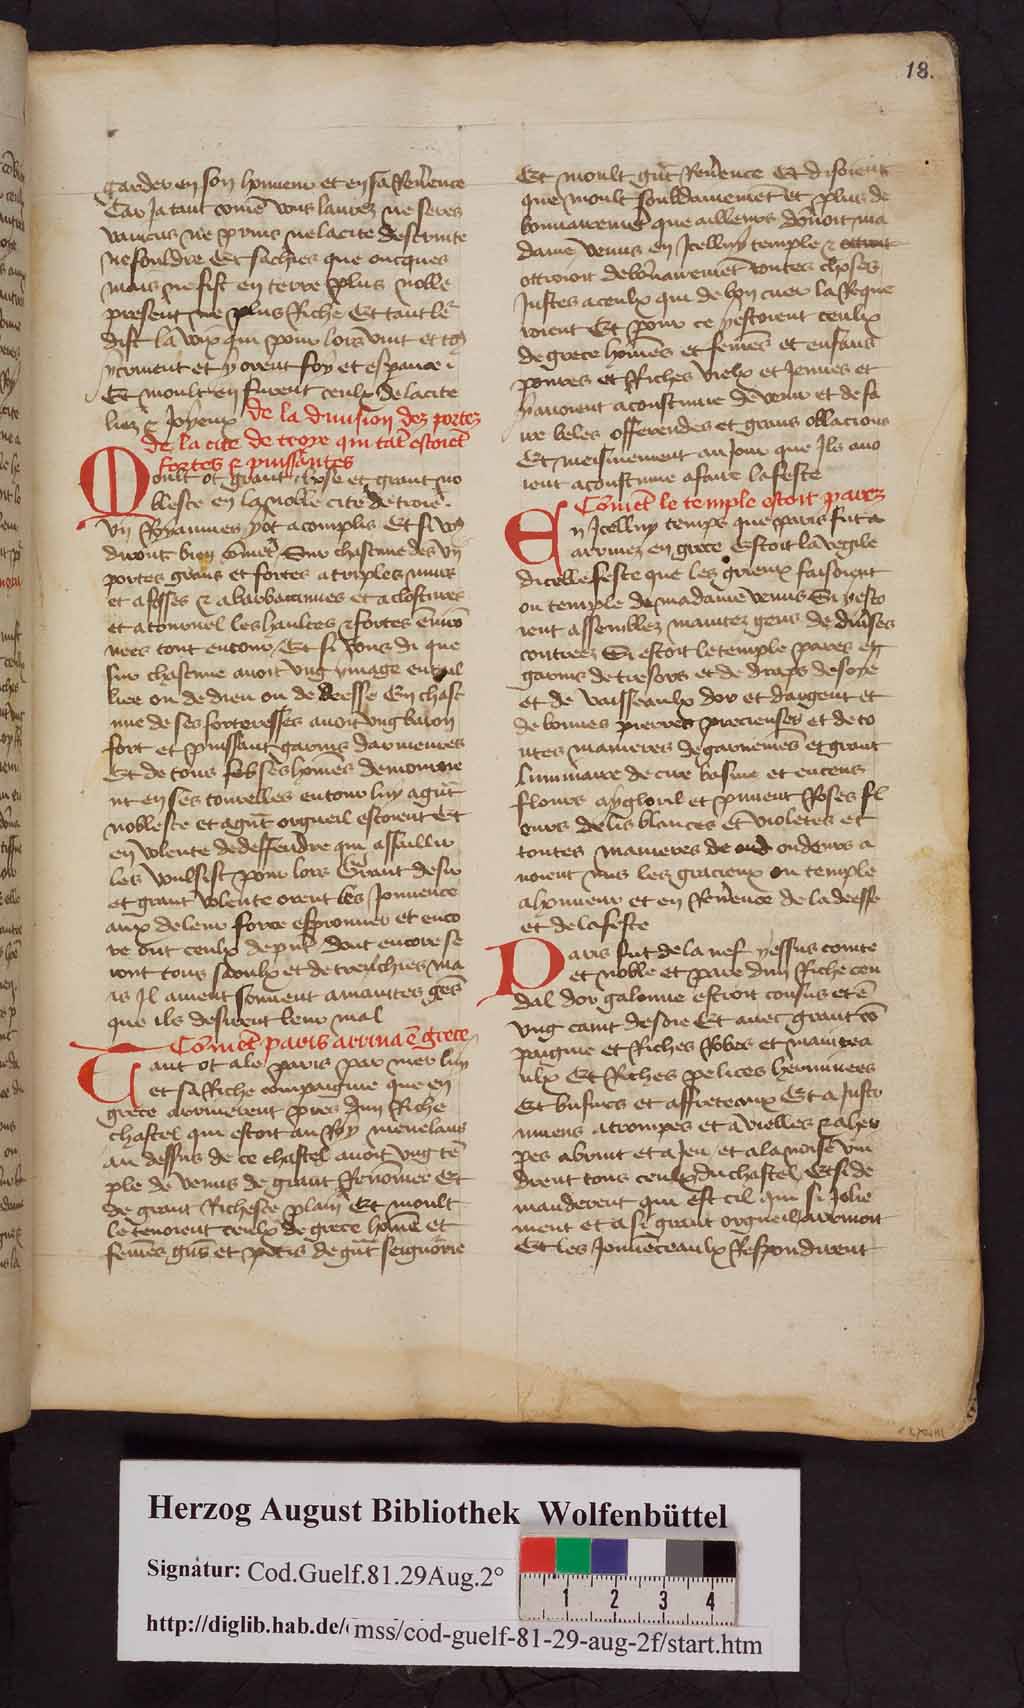 18.
garder en son honneur et en sa Revrence
Car Ja tant come vous laurez ne seres
vaincus ne prins ne la cite destruite
ne fouldre Et sachies que oncques
mais ne fist en terre plus noble
present ne plus Riche Et tant le
dist la voix qui pour lors vint et tos
y crirent et y orent foy et espance
Et moult en furent ceulx de la cite
liez & Joyeux de la division dez portez
de la cite de troye qui tat estoiet
fortes & puissantes
Moult ot grant chose et grant no
blesce en la noble cite de troie
vij Royaumes y ot acomplis Et si vos
diront bien comet Sur chascune des vij
portes grans et fortes a triples murs
et a fosses & a barbacannes et a clostures
et a tournel les haultes & fortes enviro
nees tout entour Et si vous di que
sur chascune avoit ung ymage entail
liee ou de dieu ou de deesse En chasc
une de ses forteresses avoit ung baron
fort et puissant garnis darmeures
Et de tous ses homes demoure
nt en ses tourelles entour luy a gnt
noblesce et a gnt orgueil estoient Et
en volente de deffendre qui assaillir
les vulsist pour lors Grant desir
et grant volente orent les Jouvence
aux de leur force esprouver et enco
re ont ceulx de pris dont encore se
ront tous saoulx et detrenchies ma
is Il ament souvent a maintes ges
que ils desirent leur mal
Comet paris arriva e grece
Tant ot ale paris par mer luy
et sa Riche compaignie que en
grece arriverent pres dun Riche
chastel qui estoit au Roy menelaus
au dessus de ce chastel avoit ung te
ple de venus de grant Renomee Et
de grant Richesce plain Et moult
le tenoient ceulx de grece home et
femes gns et petis de gnt seignorie
Et moult gnt Revrence Et disoient
que moult souldainemet et plus de
bonnairemet que ailleurs donoit ma
dame venus en Icelluy temple &
ottroioit debonairemet toutes choses
Justes a ceulx qui de bon cuer la Reque
roient Et pour ce y estoient ceulx
de grece homes et femes et enfans
povres et Riches vielx et Jeunes et
y avoient acoustume de venir et de fa
ire beles offerendes et grans oblacions
Et meismement au jour que Ils avo
ient acoustume a faire la feste
Comet le temple estoit parez
En Icelluy temps que paris fut a
arrivez en grece Estoit la vegile
dicelle feste que les grieux faisoient
ou temple de madame venus Si y esto
ient assemblez maintez gens de divses
contrees Si estoit le temple pares en
garnis de tresors et de draps de soye
et de vaisseaulx dor et dargent et
de bonnes pierres precieuses et de to
utes manieres de garnemes et grant
luminaire de cire basme et encens
flours ayglovil et piment Roses fl
ours de lis blances et violetes et
toutes manieres de oudeurs a
voient mis les gracieux ou temple
a honneur et en Revrence de la deesse
et de la feste
Paris fut de la nef yssus comte
et noble et pare dun Riche cen
dal dor galonne estroit consus et e
ung caint de soie Et avec grant co
paignie et Riches Robes et mantea
ulx Et Riches pelices hermines
Et busines et affreteaux Et a Jnstr
umens a trompes et a vielles & a her
pes a bruit et a Jeu et a la noise vin
drent tous ceulx du chastel Et si de
manderent qui est cil qui si Jolie
ment et a si grant orgueil arrivoit
Et les Jouvenceaulx Respondirent
Herzog August Bibliothek Wolfenbüttel
Signatur: Cod.Guelf.81.29Aug.2°
http://diglib.hab.de/mss/cod-guelf-81-29-aug-2f/start.htm
1 2 3 4